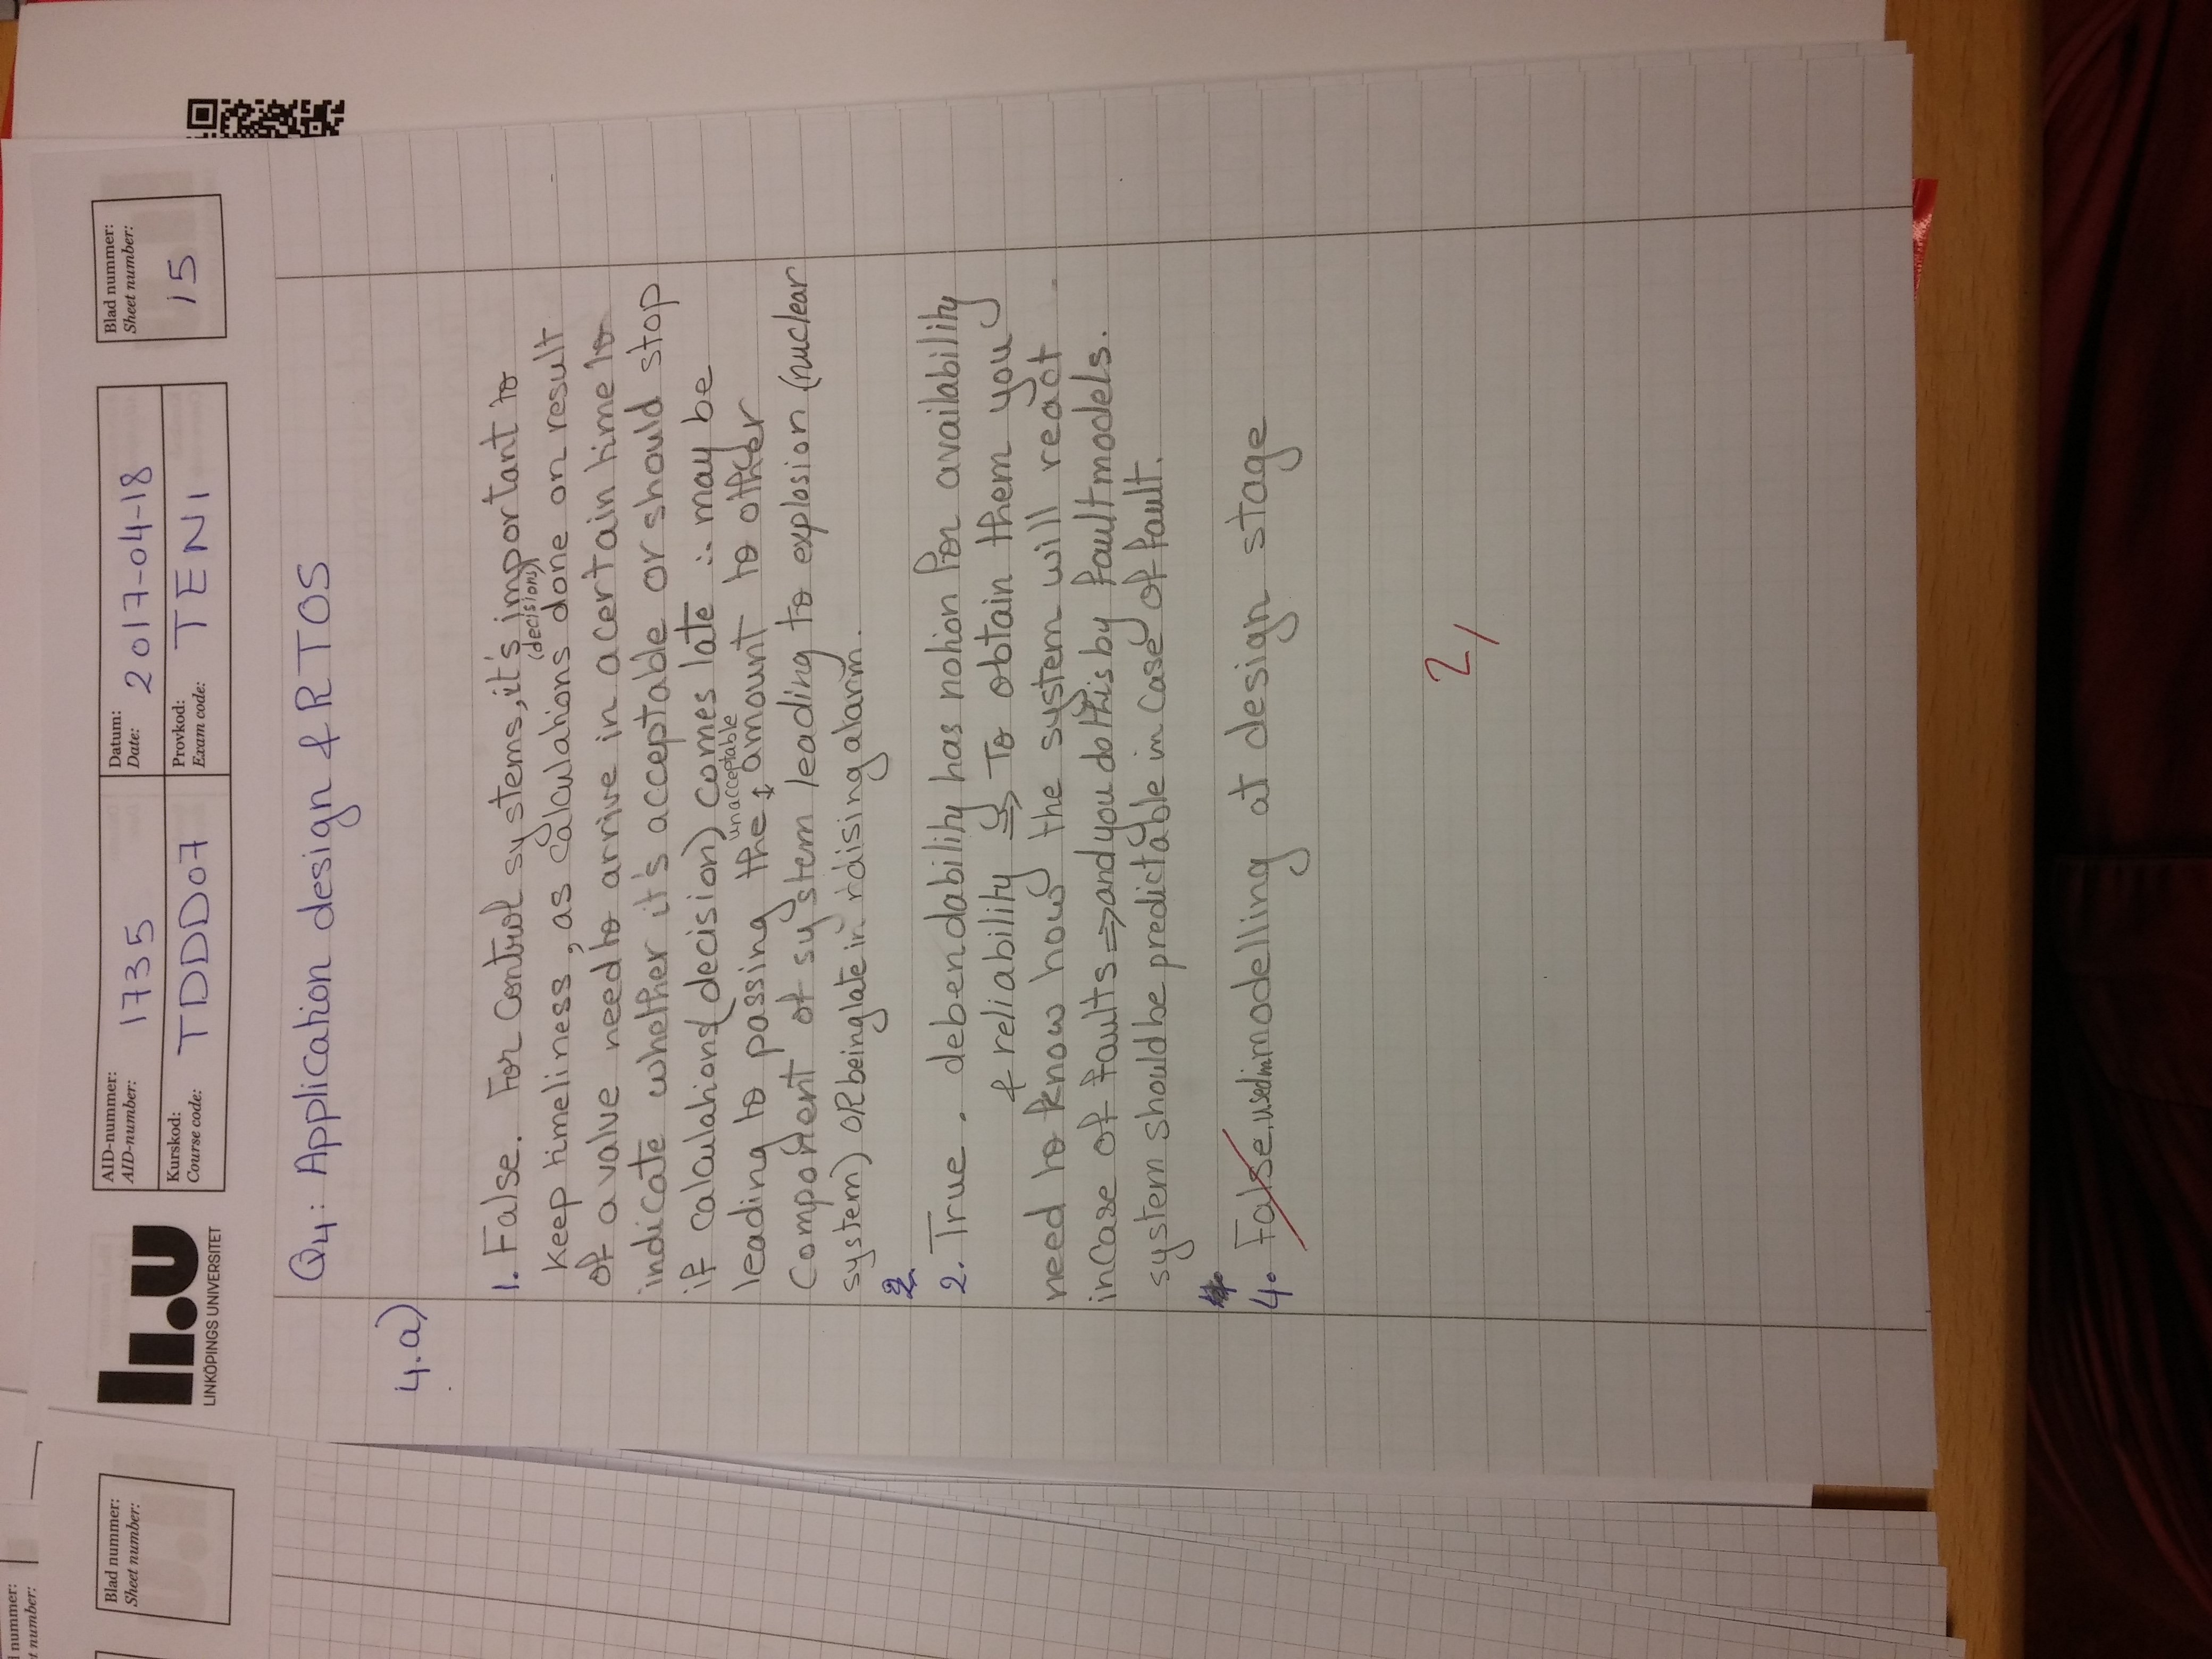 LINKÖPINGS UNIVERSITET
AID-nummer:
AID-number:
1735
Datum:
Date:
2017-04-18
Blad nummer:
Sheet number:
15
Kurskod:
Course code:
TDDD07
Provkod:
Exam code:
TEN1
Q4: Application design & RTOS
4.a)
1. False. For Control systems, it's important to
keep timeliness, as calculations (decisions) done on result
of a valve need to arrive in a certain time to
indicate whether it's acceptable or should stop
if calculations (decision) comes late ∴ may be
leading to passing the unacceptable amount to other
Component of system leading to explosion (nuclear
system) OR being late in raising alarm.
2.
2. True. debendability has notion for availability
& reliability ⇒ To obtain them you
need to know how the system will react
in case of faults ⇒ and you do this by fault models.
system should be predictable in case of fault.
4. False, used in modelling at design stage
2/
Blad nummer:
Sheet number:
nummer:
t number: